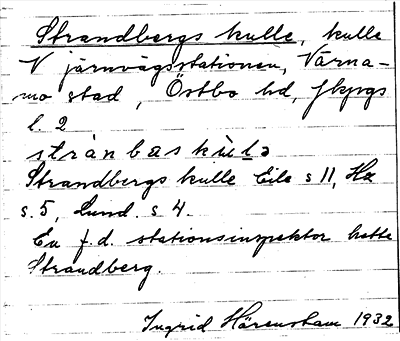 Strandbergs kulle, kulle
V järnvägsstationen, Värna-
mo stad, Östbo hd, Jkpgs
l. 2
strànbæskùlə
Strandbergs kulle Eile s 11, Ha
s. 5, Lund. s 4.
En f.d. stationsinspektor hette
Strandberg.
Ingrid Härenstam 1932